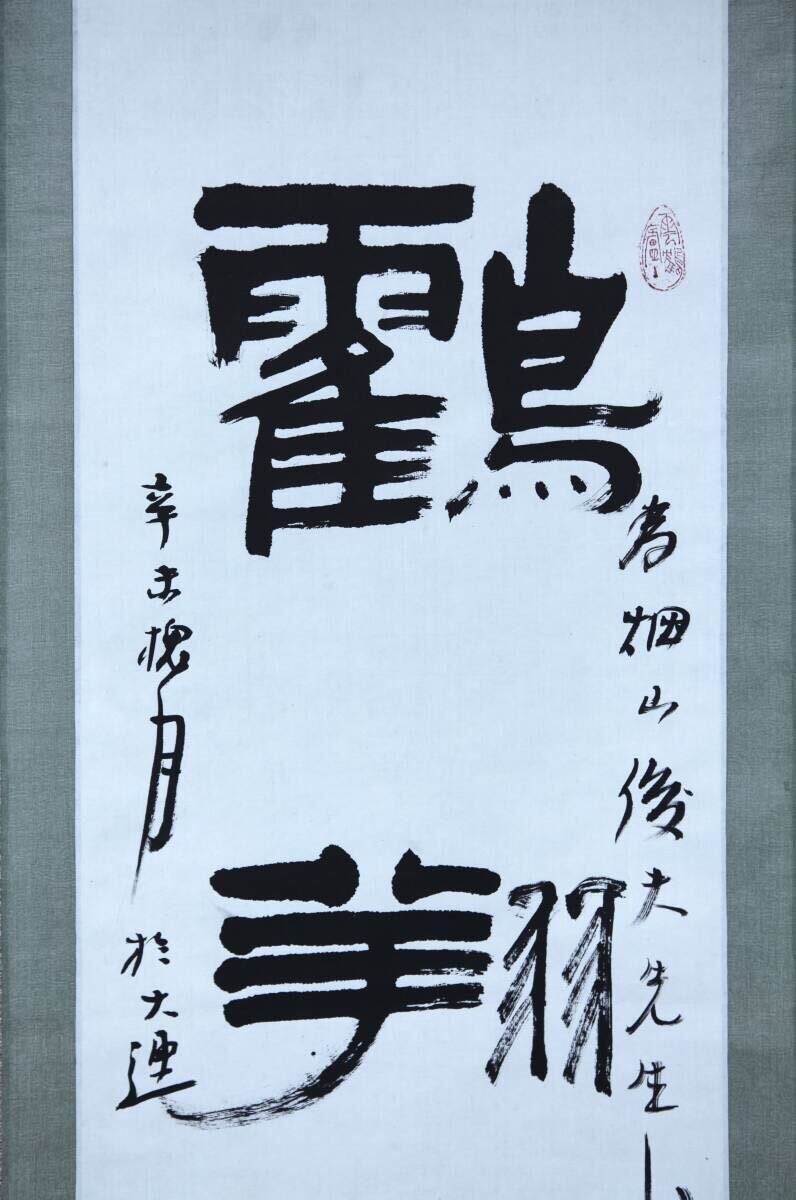 鸖翔
烟山俊夫先生
辛未槐月
於大連